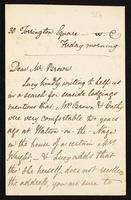 30 Torrington Square — W.C
Friday morning
Dear Mr Brown
Lucy kindly writing to help us
in a search for seaside lodgings
mentions that Mrs Brown & Cathy
were very comfortable two years
ago at Walton-on-the-Naze
in the house of a certain Mrs
Wright — & Lucy adds that
tho' she herself does not recollect
the address, you are sure to